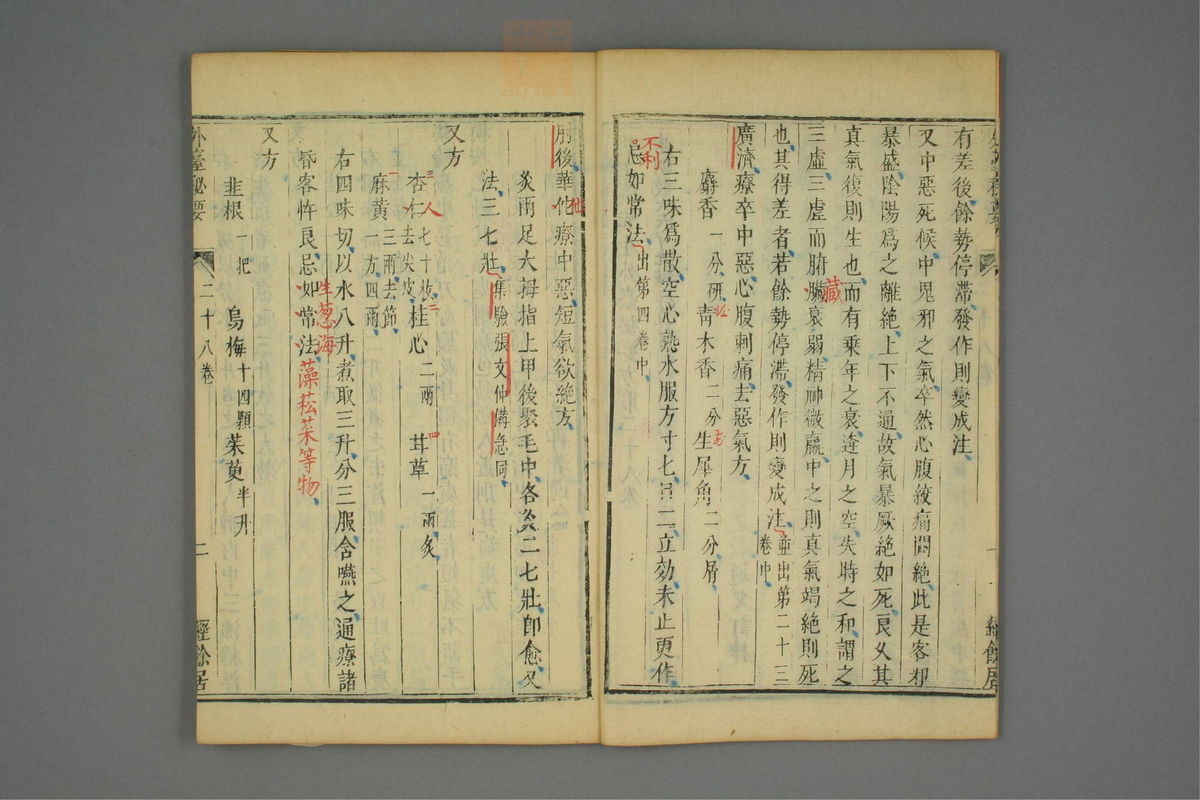 有差後餘勢停滯發作則變成注
又中惡死候中鬼邪之氣卒然心腹絞痛悶絶此是客邪
暴盛陰陽爲之離絶上下不通故氣暴厥絶如死良久其
真氣復則生也而有乗年之衰逢月之空失時之和謂之
三虛三虛而腑臟衰弱精神微羸中之則真氣竭絶則死
藏
也其得差者若餘勢停滯發作則變成注並出第二十三
卷中
廣濟療卒中惡心腹刺痛去惡氣方
麝香一分研 青木香二分 生犀角二分屑
右三味爲散空心熟水服方寸七日二立効未止更作
不利
忌如常法出第四卷中
肘後華佗療中惡短氣欲絶方
他
灸兩足大拇指上甲後聚毛中各灸二七壯即愈又
法三七壯集驗張文仲備急同
又方
杏仁七十枚去尖皮 桂心二兩 甘草一兩炙
三 人 二 四
麻黄三兩去節一方四兩
一
右四味切以水八升煮取三升分三服含嚥之通療諸
昏客忤良忌如常法
生葱海藻菘菜等物
又方
韭根一把 烏梅十四顆 茱萸半升
外臺秘要 二十八卷 二 經餘居